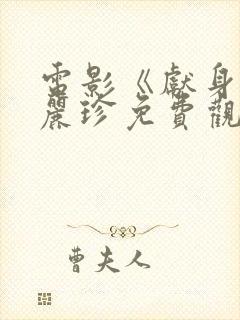 電影《獻身
麗珍免費觀
曹夫人